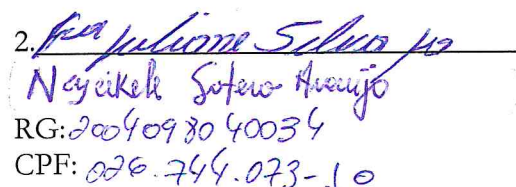 2. Fca Juliane Silva
Naycikele Sotero Araujo
RG: 2004098040034
CPF: 026.744.073-10